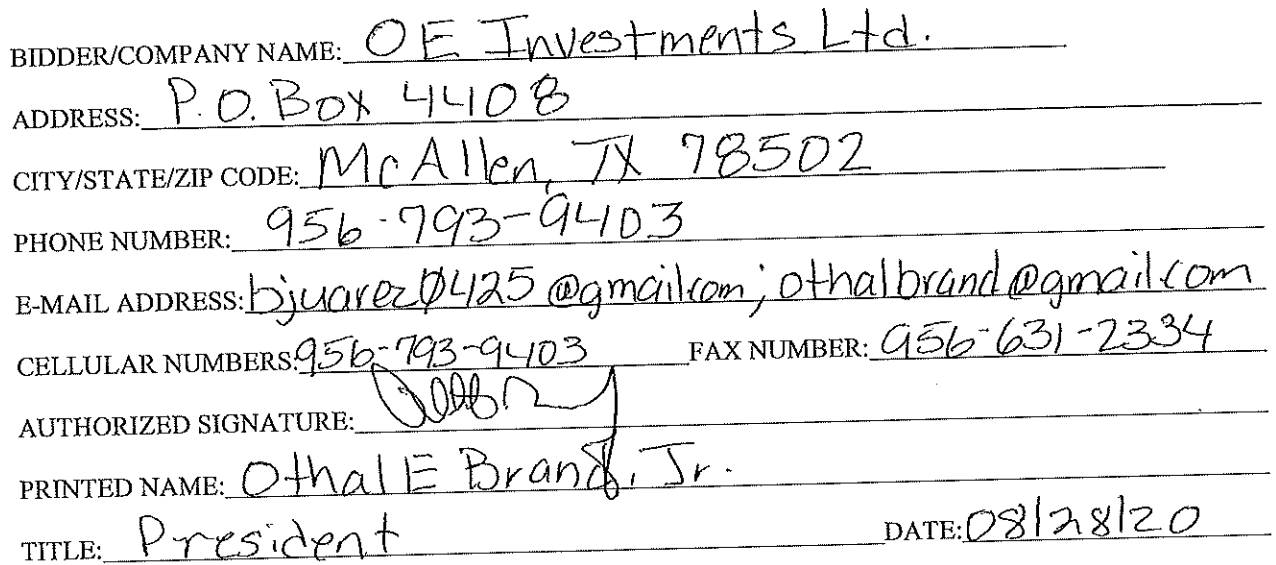 BIDDER/COMPANY NAME: OE Investments Ltd.
ADDRESS: P.O. Box 4408
CITY/STATE/ZIP CODE: McAllen, TX 78502
PHONE NUMBER: 956-793-9403
E-MAIL ADDRESS: bjuarez0425@gmail.com; othalbrand@gmail.com
CELLULAR NUMBERS: 956-793-9403 FAX NUMBER: 956-631-2334
AUTHORIZED SIGNATURE:
PRINTED NAME: Othal E Brand, Jr.
TITLE: President DATE: 08/28/20